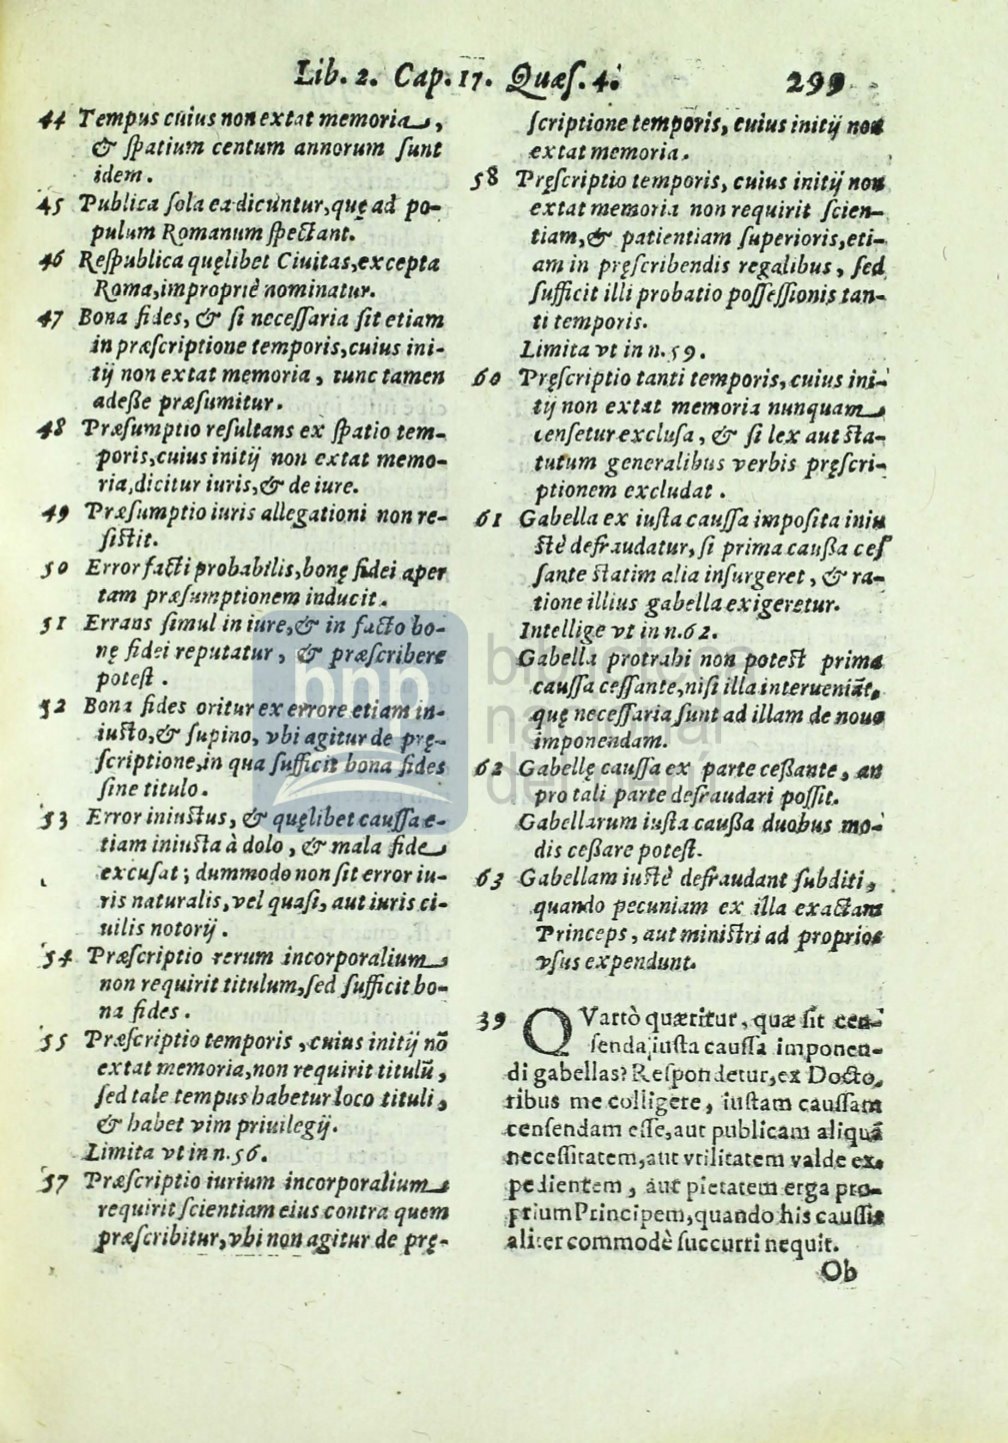 Lib. 2. Cap. 17. Quæſ. 4. 299
44 Tempus cuius non extat memoria,
& ſpatium centum annorum ſunt
idem.
45 Publica ſola ea dicuntur, quę ad po-
pulum Romanum ſpectant.
46 Reſpublica quęlibet Ciuitas, excepta
Roma, impropriè nominatur.
47 Bona fides, & ſi neceſſaria ſit etiam
in præſcriptione temporis, cuius ini-
tij non extat memoria, tunc tamen
adeße præſumitur.
48 Præſumptio reſultans ex ſpatio tem-
poris, cuius initij non extat memo-
ria, dicitur iuris, & de iure.
49 Præſumptio iuris allegationi non re-
ſiſtit.
50 Error facti probabilis, bonę fidei aper
tam præſumptionem inducit.
51 Errans ſimul in iure, & in facto bo-
nę fidei reputatur, & præſcribere
poteſt.
52 Bona fides oritur ex errore etiam in-
iuſto, & ſupino, vbi agitur de prę-
ſcriptione, in qua ſufficit bona fides
ſine titulo.
53 Error iniuſtus, & quęlibet cauſſa e-
tiam iniuſta à dolo, & mala fide
excuſat; dummodo non ſit error iu-
ris naturalis, vel quaſi, aut iuris ci-
uilis notorij.
54 Præſcriptio rerum incorporalium
non requirit titulum, ſed ſufficit bo-
na fides.
55 Præſcriptio temporis, cuius initij nō
extat memoria, non requirit titulū,
ſed tale tempus habetur loco tituli,
& habet vim priuilegij.
Limita vt in n. 56.
57 Præſcriptio iurium incorporalium
requirit ſcientiam eius contra quem
præſcribitur, vbi non agitur de prę-
ſcriptione temporis, cuius initij non
extat memoria.
58 Pręſcriptio temporis, cuius initij non
extat memoria non requirit ſcien-
tiam, & patientiam ſuperioris, eti-
am in pręſcribendis regalibus, ſed
ſufficit illi probatio poſſeſſionis tan-
ti temporis.
Limita vt in n. 59.
60 Pręſcriptio tanti temporis, cuius ini-
tij non extat memoria nunquam
cenſetur excluſa, & ſi lex aut ſta-
tutum generalibus verbis pręſcri-
ptionem excludat.
61 Gabella ex iuſta cauſſa impoſita iniu
ſtè defraudatur, ſi prima caußa ceſ
ſante ſtatim alia inſurgeret, & ra-
tione illius gabella exigeretur.
Intellige vt in n. 62.
Gabella protrahi non poteſt prima
cauſſa ceſſante, niſi illa interueniāt,
quę neceſſaria ſunt ad illam de nouo
imponendam.
62 Gabellę cauſſa ex parte ceßante, an
pro tali parte defraudari poſſit.
Gabellarum iuſta caußa duobus mo-
dis ceßare poteſt.
63 Gabellam iuſtè defraudant ſubditi,
quando pecuniam ex illa exactam
Princeps, aut miniſtri ad proprios
vſus expendunt.
39 QVartò quæritur, quæ ſit cen-
ſenda iuſta cauſſa imponen-
di gabellas? Reſpondetur, ex Docto,
ribus me colligere, iuſtam cauſſam
cenſendam eſſe, aut publicam aliquā
neceſſitatem, aut vtilitatem valde ex-
pedientem, aut pietatem erga pro-
prium Principem, quando his cauſſis
aliter commodè ſuccurri nequit.
Ob
bnp
biblioteca
nacional
del perú